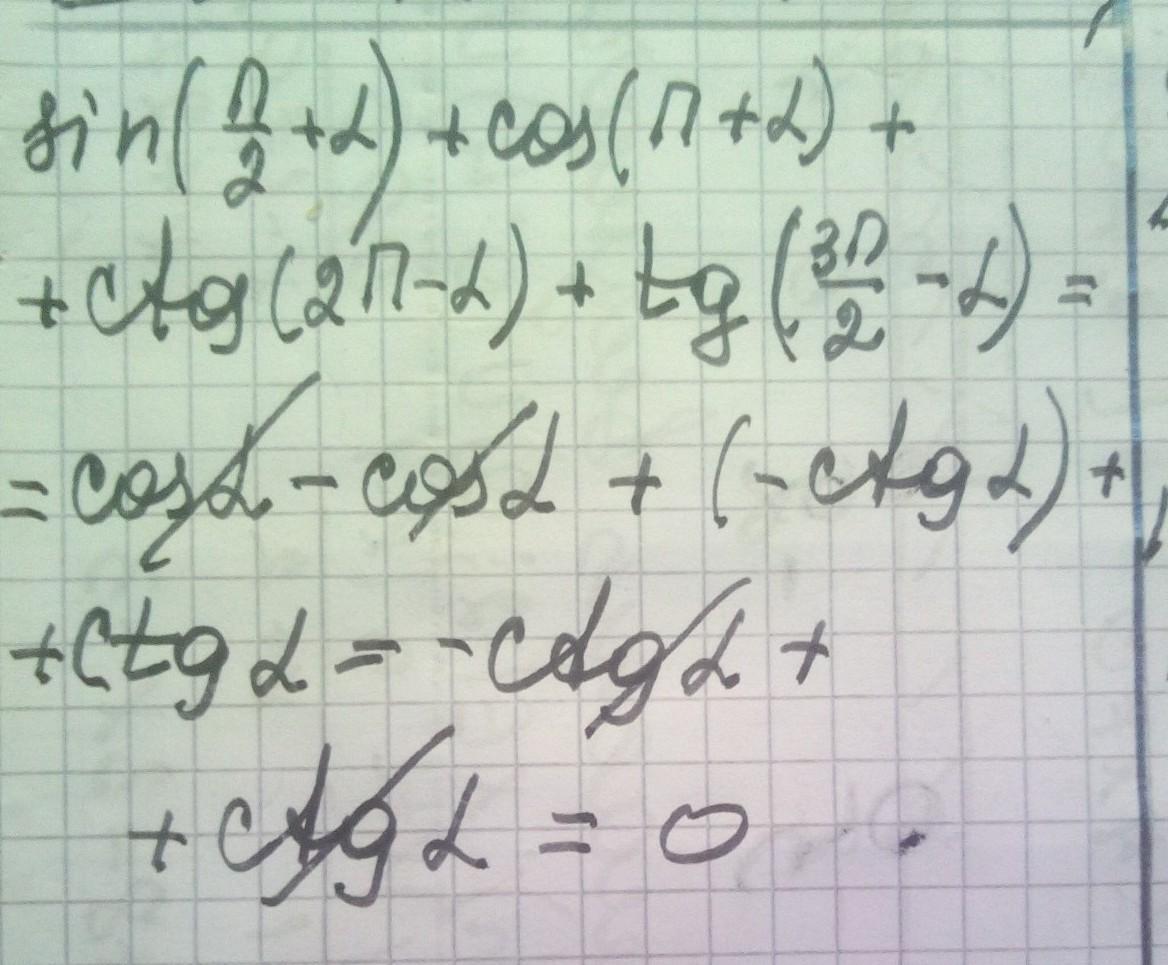 sin(π/2 + α) + cos(π + α) +
+ ctg(2π - α) + tg(3π/2 - α) =
= cosα - cosα + (-ctgα) +
+ ctgα = -ctgα +
+ ctgα = 0